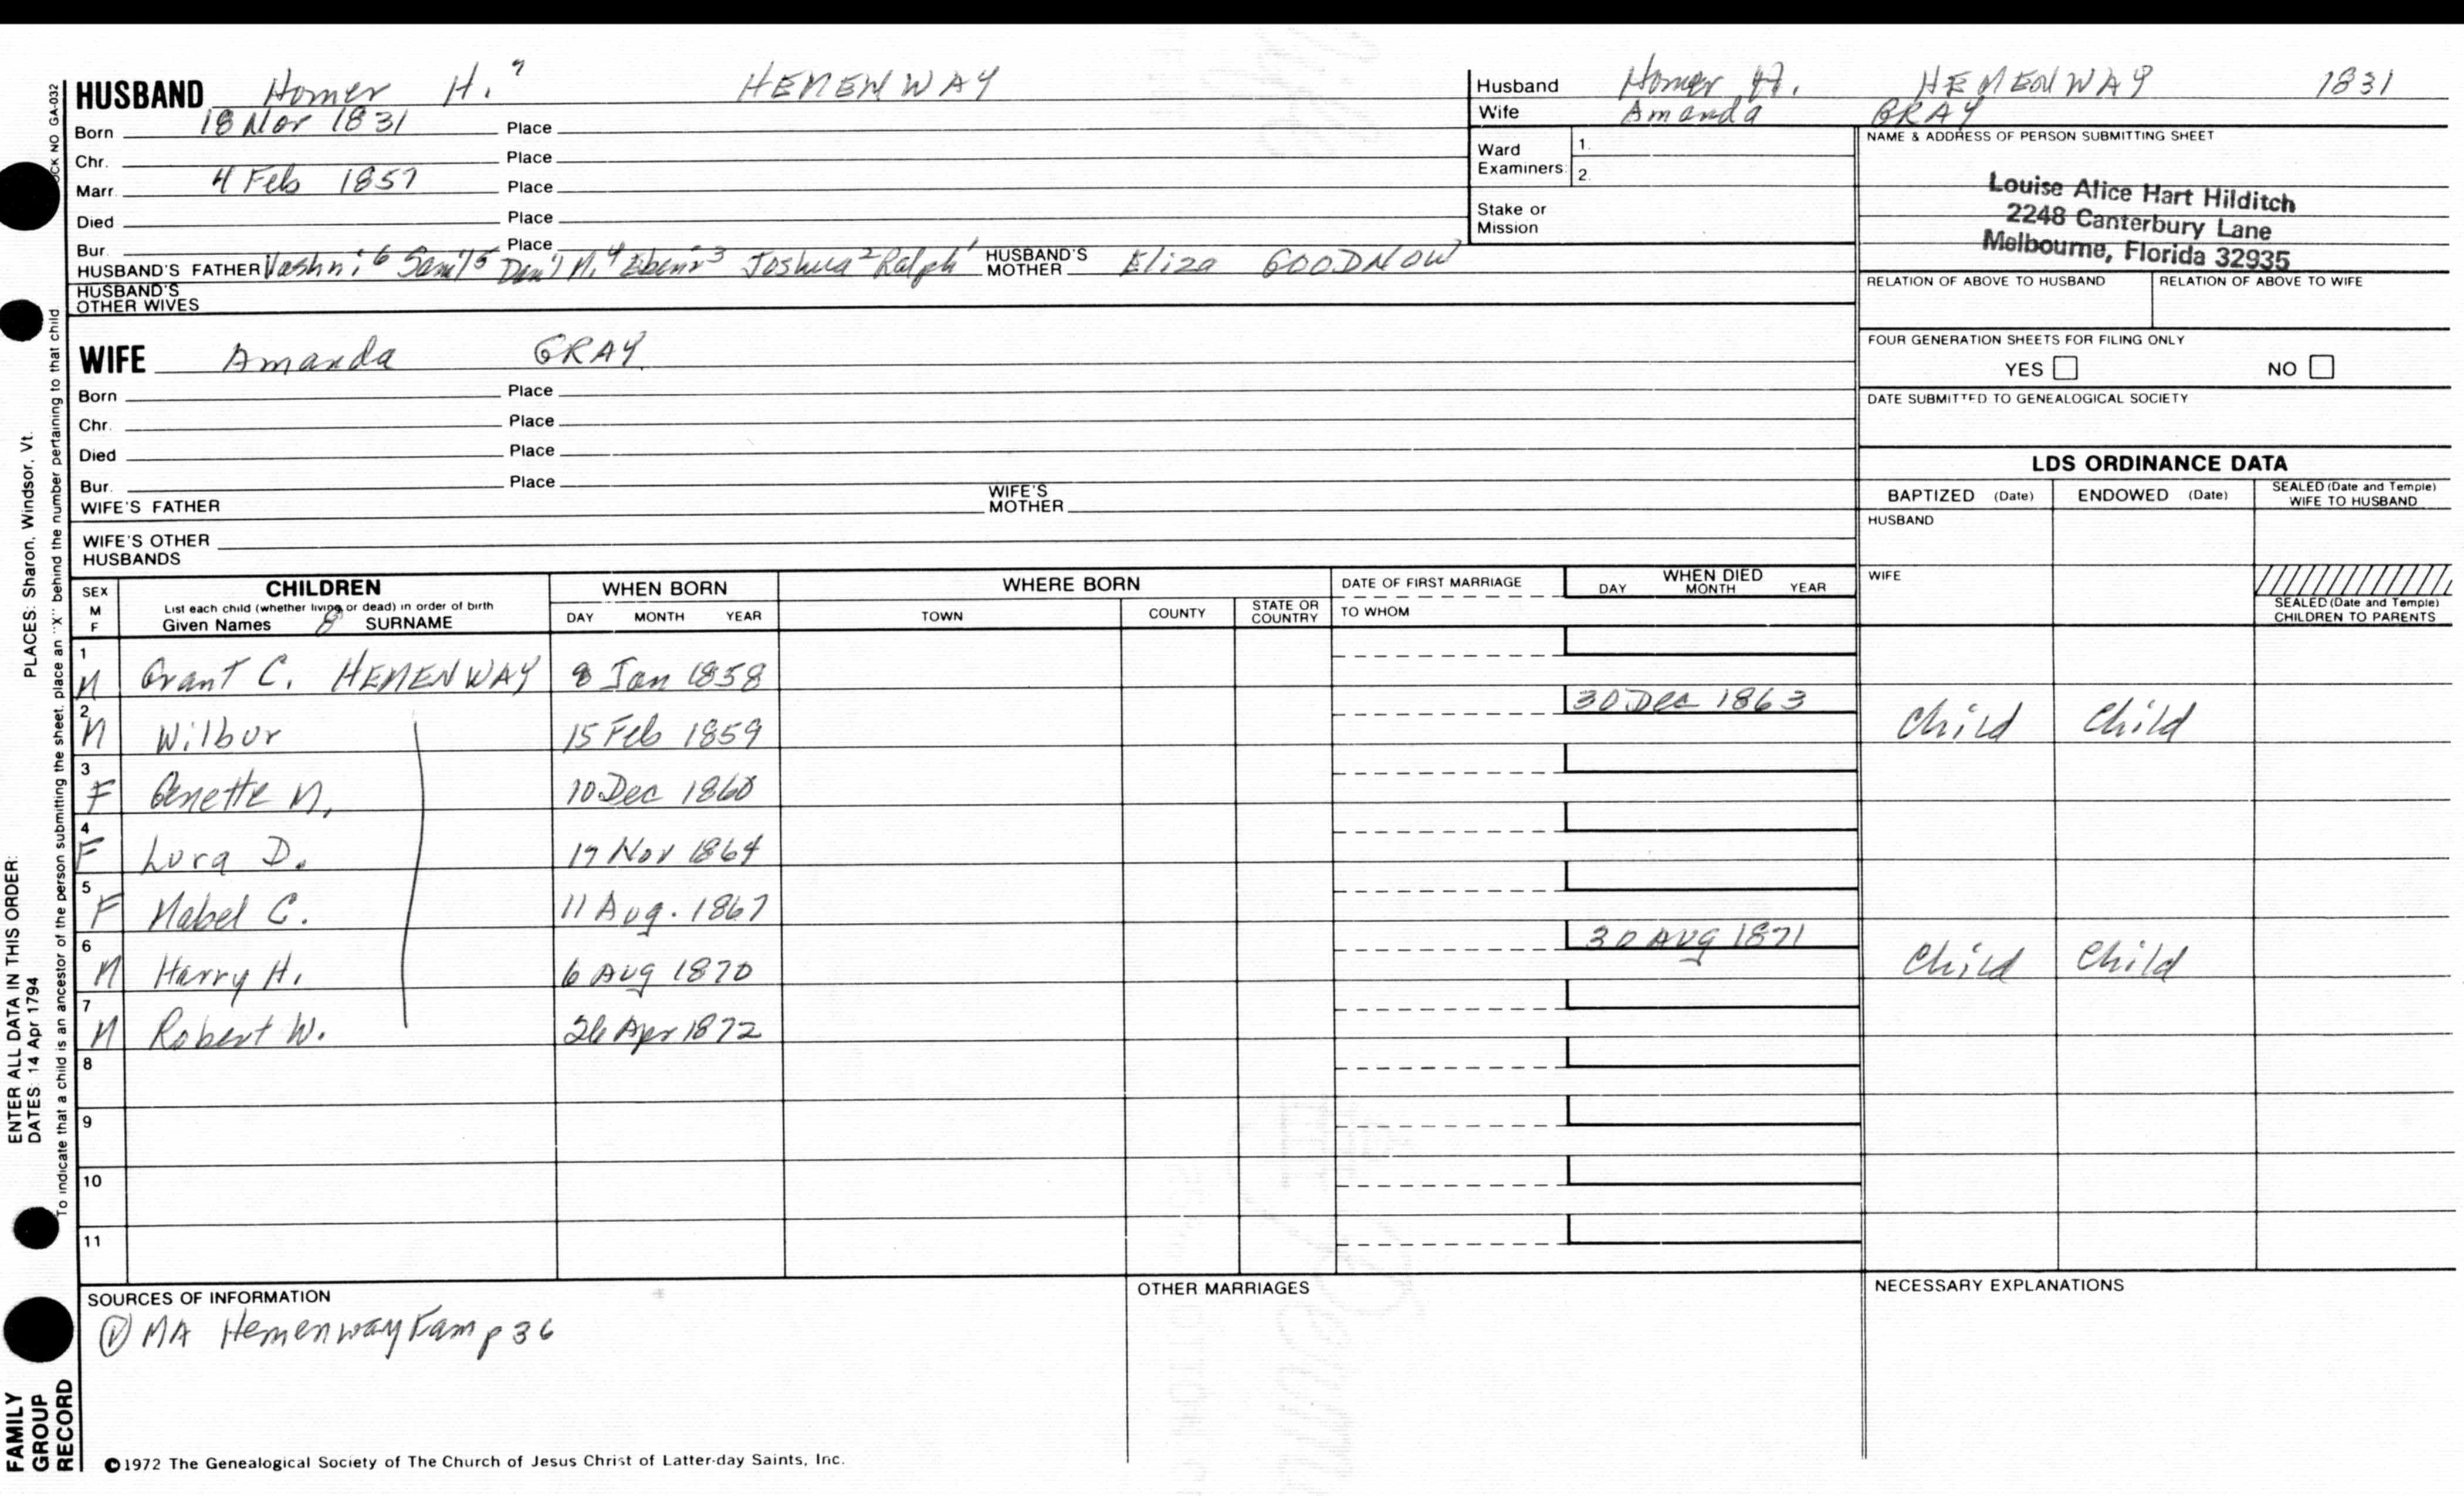 HUSBAND Homer H. 7 HEMENWAY
Born 18 Mar 1831 Place
Chr. Place
Marr. 4 Feb 1857 Place
Died Place
Bur. Place
HUSBAND'S FATHER Vashni 6 Saml 5 Danl M. 4 Ebenr 3 Joshua 2 Ralph 1 HUSBAND'S MOTHER Eliza GOODNOW
HUSBAND'S OTHER WIVES
Husband Homer H. HEMENWAY 1831
Wife Amanda GRAY
Ward Examiners: 1. 2.
Stake or Mission
NAME & ADDRESS OF PERSON SUBMITTING SHEET
Louise Alice Hart Hilditch
2248 Canterbury Lane
Melbourne, Florida 32935
RELATION OF ABOVE TO HUSBAND RELATION OF ABOVE TO WIFE
FOUR GENERATION SHEETS FOR FILING ONLY
YES NO
DATE SUBMITTED TO GENEALOGICAL SOCIETY
WIFE Amanda GRAY
Born Place
Chr. Place
Died Place
Bur. Place
WIFE'S FATHER WIFE'S MOTHER
WIFE'S OTHER HUSBANDS
LDS ORDINANCE DATA
BAPTIZED (Date) ENDOWED (Date) SEALED (Date and Temple) WIFE TO HUSBAND
HUSBAND
WIFE
SEALED (Date and Temple) CHILDREN TO PARENTS
SEX M F
CHILDREN
List each child (whether living or dead) in order of birth
Given Names 8 SURNAME
WHEN BORN
DAY MONTH YEAR
WHERE BORN
TOWN COUNTY STATE OR COUNTRY
DATE OF FIRST MARRIAGE
TO WHOM
WHEN DIED
DAY MONTH YEAR
1 M Grant C. HEMENWAY 8 Jan 1858
2 M Wilbur 15 Feb 1859 30 Dec 1863 Child Child
3 F Genette M. 10 Dec 1860
4 F Lura D. 17 Nov 1864
5 F Mabel C. 11 Aug. 1867
6 M Harry H. 6 Aug 1870 30 Aug 1871 Child Child
7 M Robert W. 26 Apr 1872
8
9
10
11
SOURCES OF INFORMATION
① MA Hemenway Fam p 36
OTHER MARRIAGES
NECESSARY EXPLANATIONS
©1972 The Genealogical Society of The Church of Jesus Christ of Latter-day Saints, Inc.
FAMILY GROUP RECORD
ENTER ALL DATA IN THIS ORDER:
DATES: 14 Apr 1794
PLACES: Sharon, Windsor, Vt.
To indicate that a child is an ancestor of the person submitting the sheet, place an "X" behind the number pertaining to that child
OCK NO GA-032